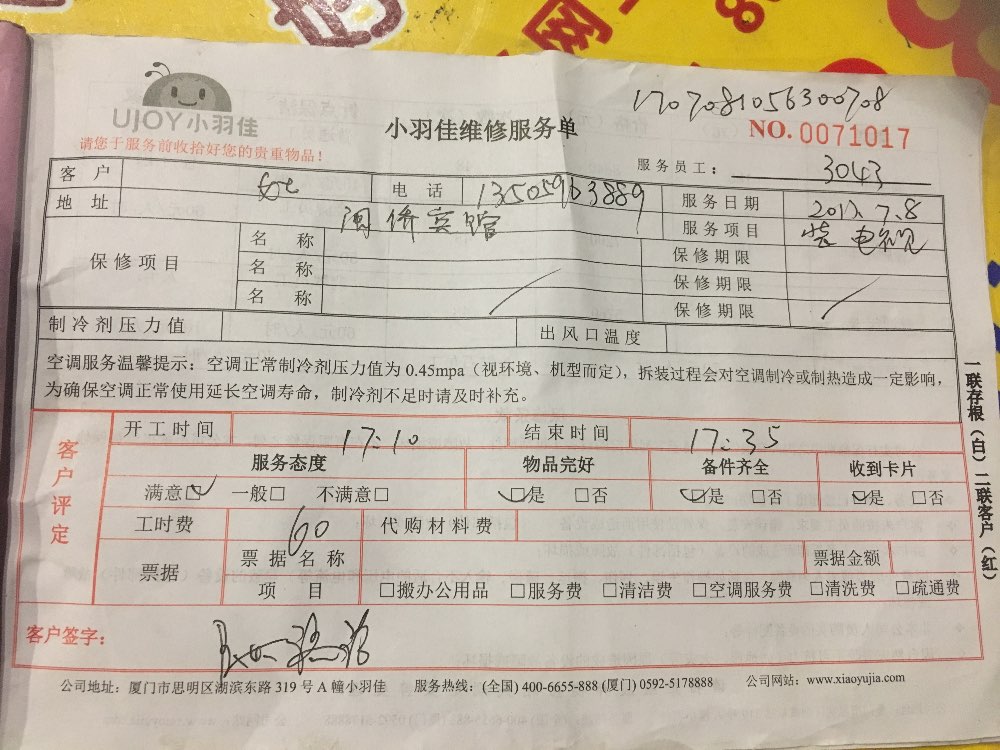 1707081056300708
UJOY小羽佳
小羽佳维修服务单
NO. 0071017
请您于服务前收拾好您的贵重物品！
服务员工： 3043
客 户 电 话 13505963889 服务日期 2017.7.8
地 址 闽侨宾馆 服务项目 装电视
保修项目 名 称 保修期限
名 称 保修期限
名 称 保修期限
制冷剂压力值 出风口温度
空调服务温馨提示：空调正常制冷剂压力值为 0.45mpa（视环境、机型而定），拆装过程会对空调制冷或制热造成一定影响，
为确保空调正常使用延长空调寿命，制冷剂不足时请及时补充。
一联存根（白）二联客户（红）
客户评定
开工时间 17:10 结束时间 17:35
服务态度 物品完好 备件齐全 收到卡片
满意□ 一般□ 不满意□ □是 □否 □是 □否 □是 □否
工时费 60 代购材料费
票据 票据名称 票据金额
项 目 □搬办公用品 □服务费 □清洁费 □空调服务费 □清洗费 □疏通费
客户签字：
公司地址：厦门市思明区湖滨东路 319 号 A 幢小羽佳 服务热线：(全国) 400-6655-888 (厦门) 0592-5178888 公司网站：www.xiaoyujia.com